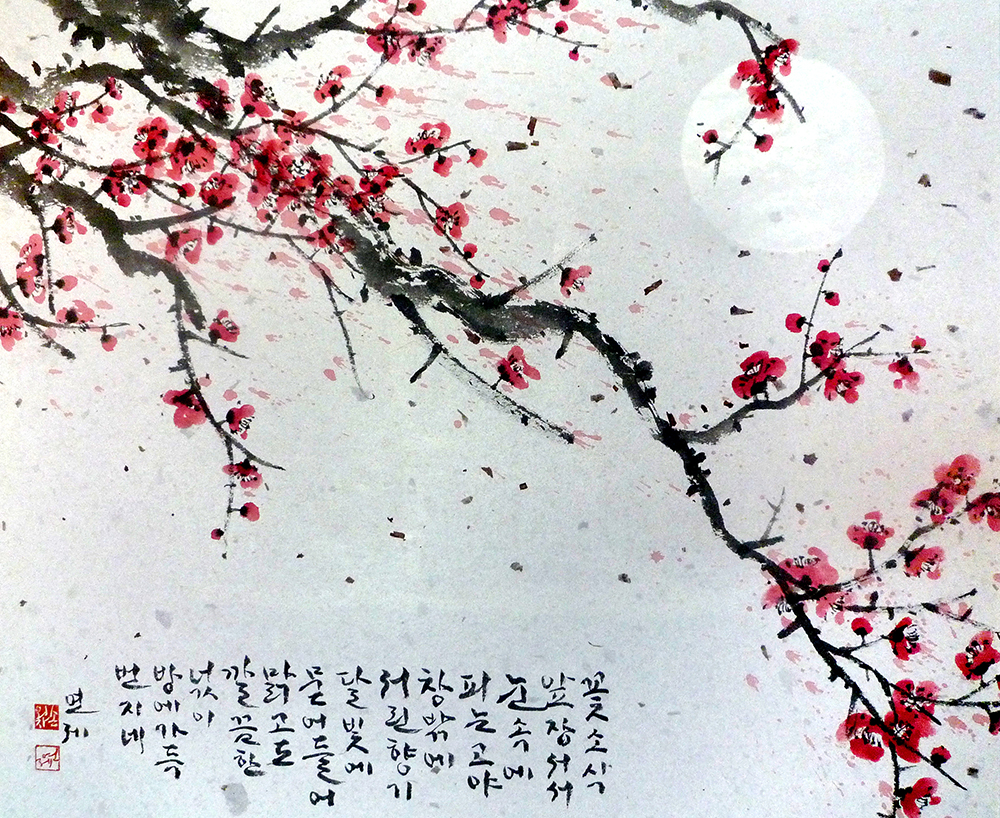 꽃소식
앞장서서
눈속에
피는고야
창밖에
서린향기
달빛에
묻어들어
맑고도
깔끔한
넋이
방에가득
번지네